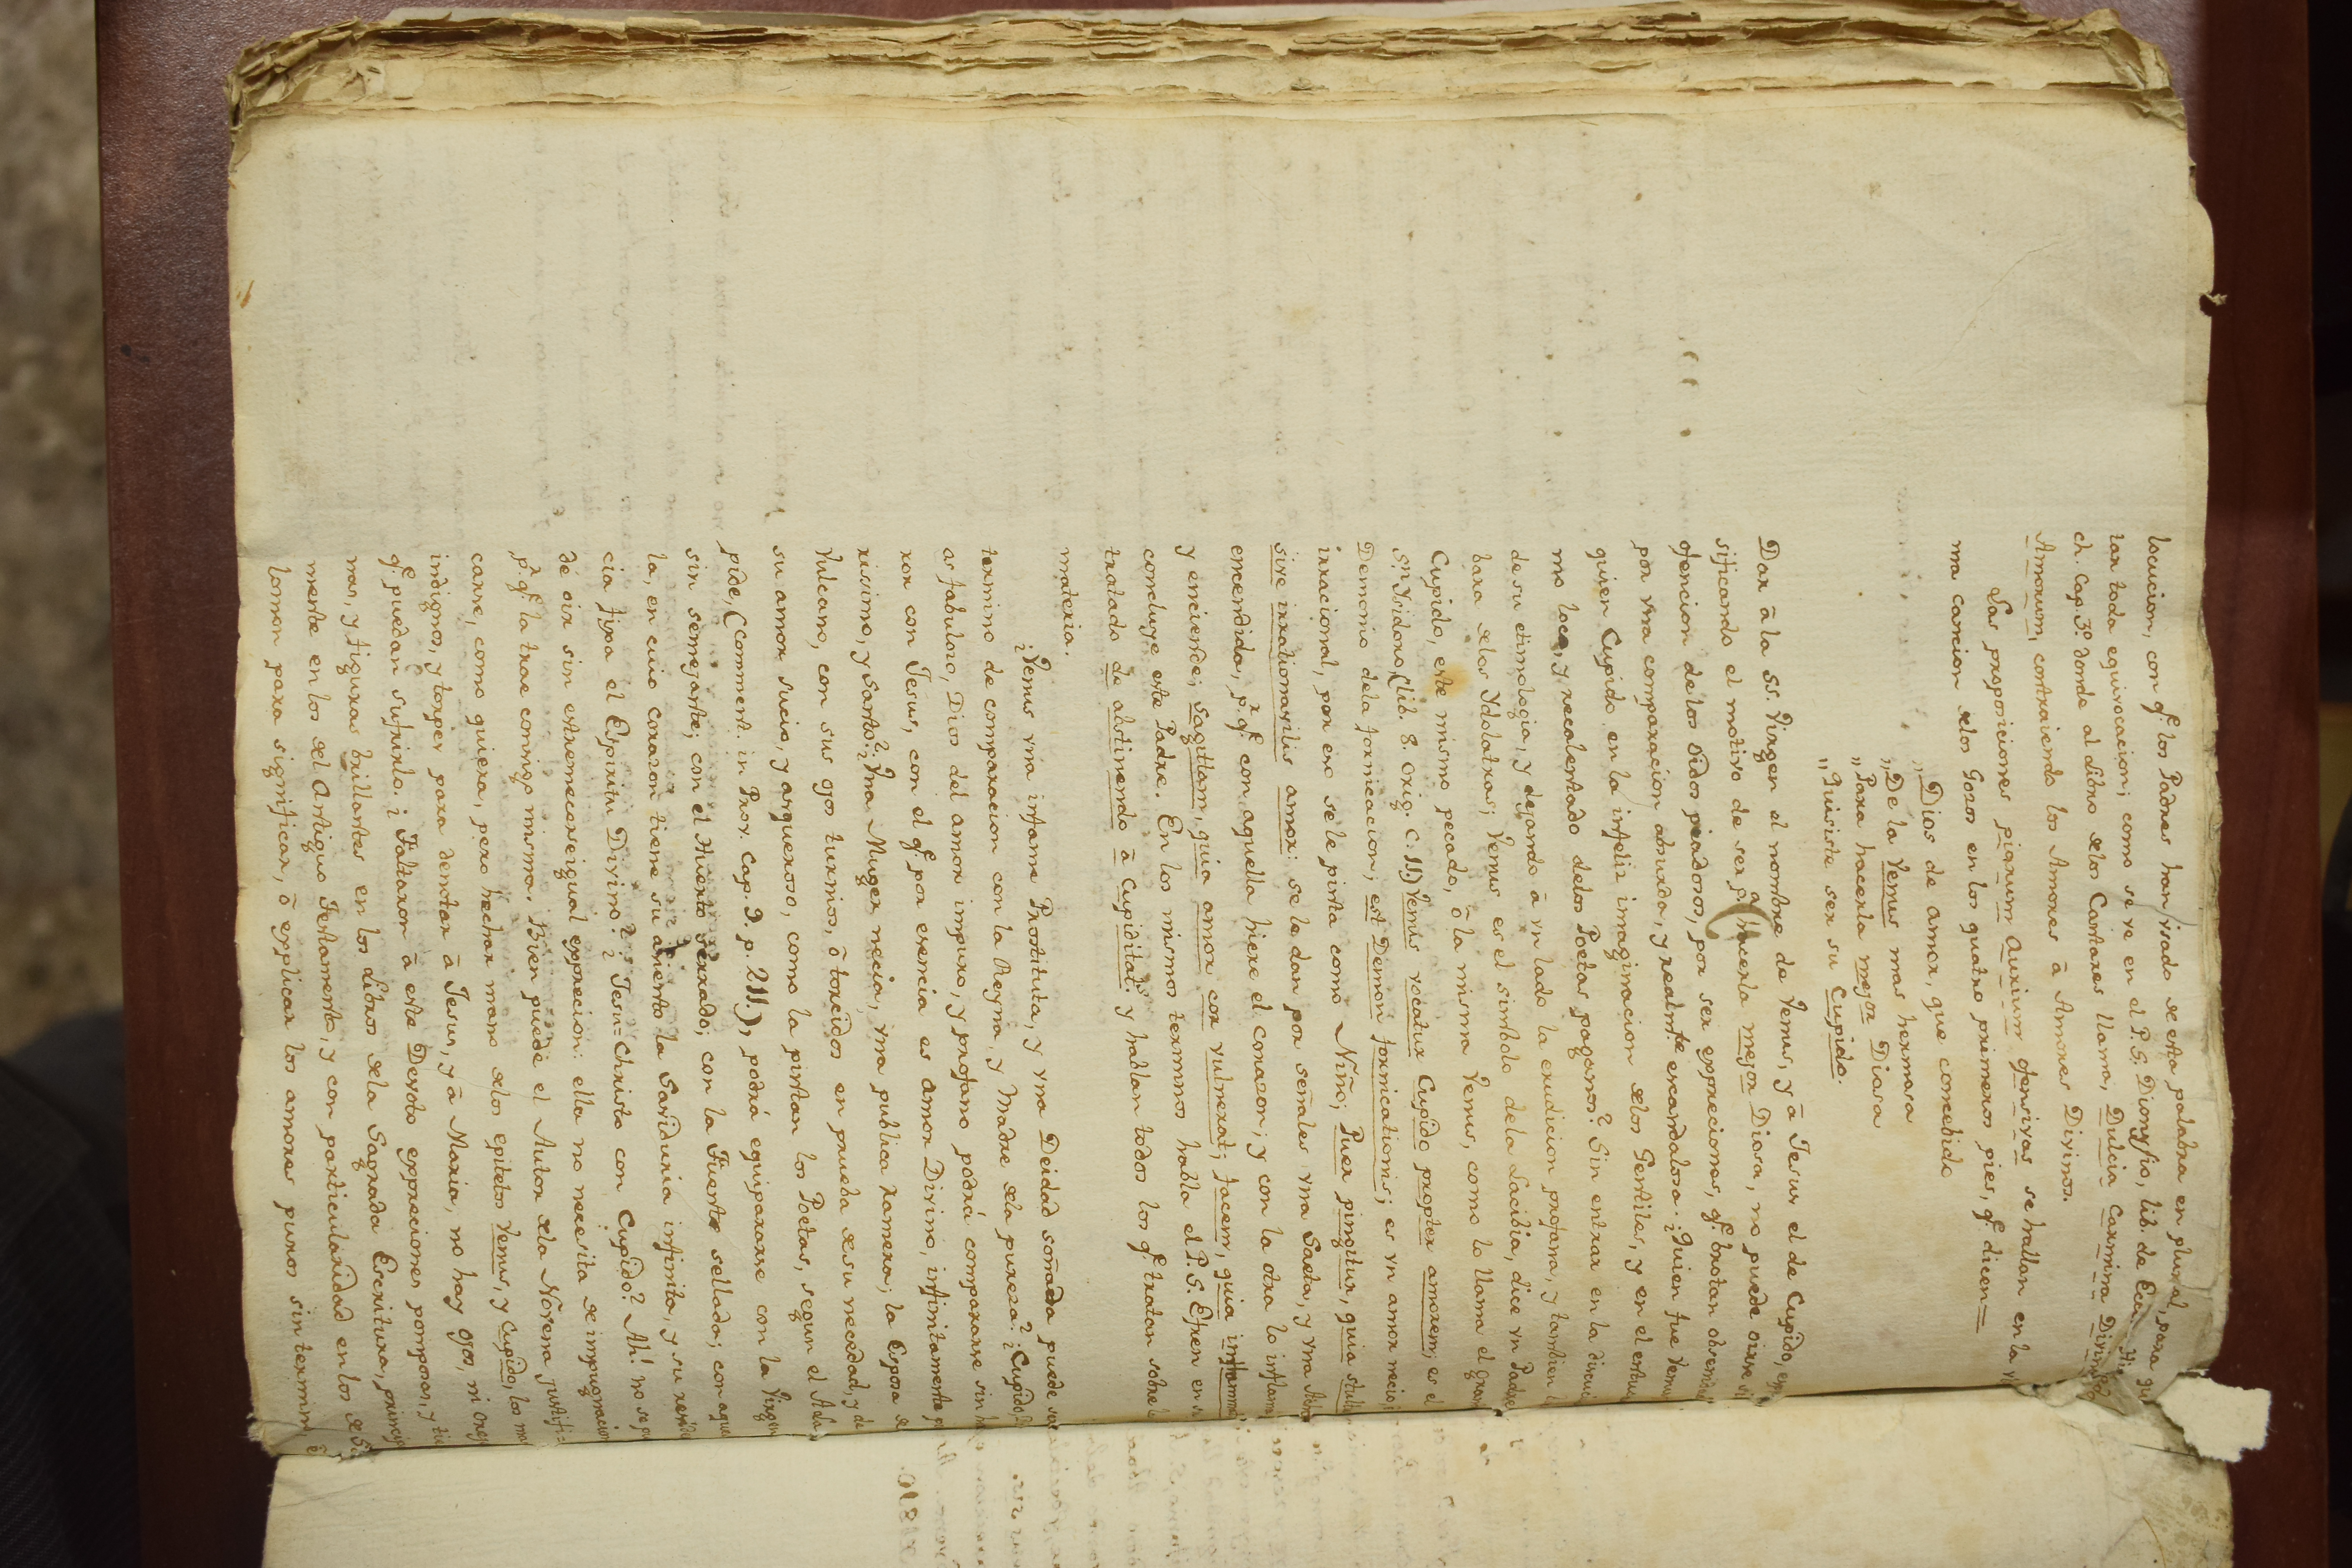 locucion, con q.e los Padres han usado de esta palabra en plural, para qui
tar toda equivocacion; como se ve en el P. S. Dionysio, lib. de Ecc.
ch. Cap. 3º donde al Libro de los Cantares llama, Dulcia Carmina Divinor
Amorum, contraiendo los Amores â Amores Divinos.
Las proposiciones piarum Aurium ofensivas se hallan en la
ma cancion de los Gozos en los quatro primeros pies, q.e dicen=
„Dios de amor, que concebido
„De la Venus mas hermosa
„Para hacerla mejor Diosa
„Quisiste ser su Cupido.
Dar â la SS. Virgen el nombre de Venus, y â Jesus el de Cupido,
sificando el motivo de ser p.a hacerla mejor Diosa, no puede oirse
ofencion de los oidos piadosos, por ser expreciones, q.e brotan
por vna comparacion absurda, y realmte escandalosa. ¿Quien fue Venus
quien Cupido en la infeliz imaginacion de los Gentiles, y en el
mo loco, y recalentado de los Poetas paganos? Sin entrar en la
de su etimologia, y dejando â vn lado la erudicion profana, y tambien
bara de los Ydolatras; Venus es el simbolo de la Lacibia, dice vn Padre
Cupido, este mismo pecado, ô la misma Venus, como lo llama el gran
S.n Ysidoro (lib. 8. orig. C. 11.) Venus vocatur Cupido propter amorem; es el
Demonio de la fornicacion; est Demon fornicationis; es vn amor necio,
irracional, por eso se le pinta como Niño; Puer pingitur, quia
sive irrationavilis amor: se le dan por señales vna Saeta, y vna
encendida, p.r q.e con aquella hiere el corazon; y con la otra lo inflama
y enciende; sagittam, quia amor cor vulnerat; facem, quia inflammat
concluye este Padre. En los mismos terminos habla el P. S. Efren en
tratado de abstinendo â Cupiditat.s y hablan todos los q.e tratan sobre
materia.
¿Venus vna infame Prostituta, y vna Deidad soñada puede
termino de comparacion con la Reyna, y Madre de la pureza? ¿Cupido,
as fabuloso, Dios del amor impuro, y profano podrá compararse sin
ror con Jesus, con el q.e por esencia es Amor Divino, infinitamente
rissimo, y santo? ¿Vna Muger necia, vna publica ramera; la Esposa de
Vulcano, con sus ojos turnios, ô torcidos en prueba de su necedad, y de
su amor sucio, y asqueroso, como la pintan los Poetas, segun el
pide, (Comment. in Prov. Cap. 9. p. 211.), podrá equipararse con la Virgen
sin semejante; con el Huerto serrado; con la Fuente sellada; con
la, en cuio corazon tiene su asiento la Saviduria infinita, y su
cia fixa el Espiritu Divino? ¿Jesu=Christo con Cupido? Ah! no se
de oir sin estremecerse igual exprecion: ella no necesita de impugnacion
p.r q.e la trae consigo misma. Bien puede el Autor de la Novena
carse, como quiera, pero hechar mano de los epitetos Venus, y Cupido, los mas
indignos, y torpes para denotar â Jesus, y â Maria, no hay ojos, ni
q.e puedan sufrirlo. ¿Faltaron â este Devoto expreciones pomposas, y
nas, y figuras brillantes en los Libros de la Sagrada Escritura,
mente en los del Antiguo Testamento, y con particularidad en los de
lomon para significar, ô explicar los amores puros sin termino